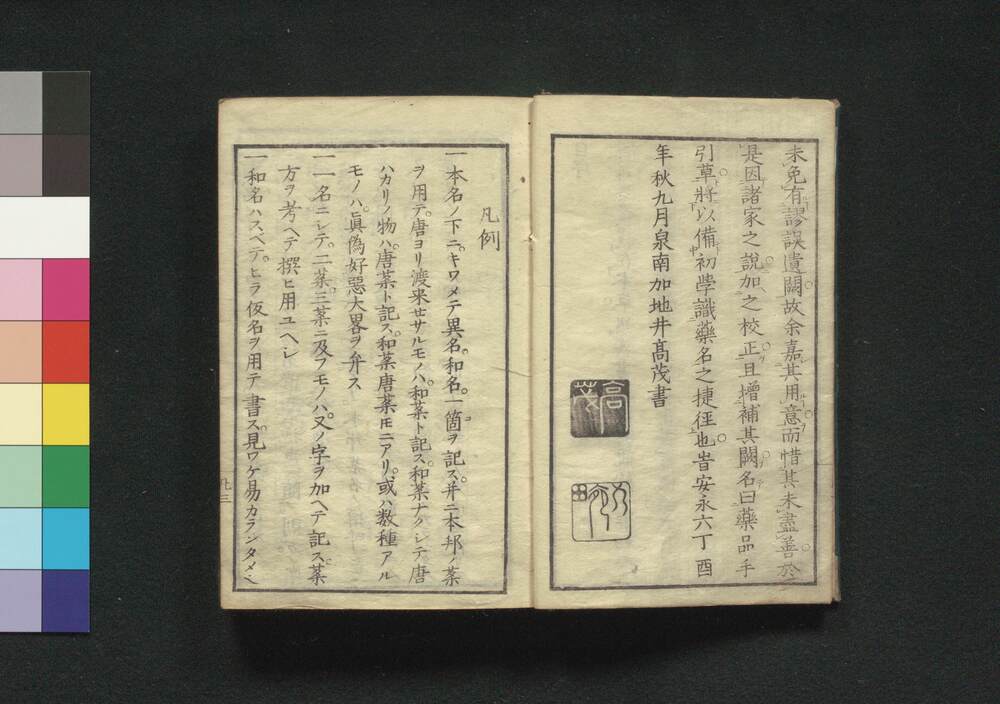 未免有謬誤遺闕故余嘉其用意而惜其未盡善於
是因諸家之說加之校正且增補其闕名曰藥品手
引草將以備初學識藥名之捷徑也旹安永六丁酉
年秋九月泉南加地井髙茂書
高茂
凡例
一本名ノ下ニ。キワメテ異名。和名。一箇ヲ記ス。并ニ本邦ノ藥
ヲ用テ。唐ヨリ渡来せサルモノハ。和藥ト記ス。和藥ナクシテ。唐
ハカリノ物ハ。唐藥ト記ス。和藥唐藥𪜈ニアリ。或ハ数種アル
モノハ。眞偽好惡大畧ヲ弁ス
一一名ニシテ。二藥三藥ニ及フモノハ。又ノ字ヲ加ヘテ記ス。藥
方ヲ考ヘテ撰ヒ用ユヘシ
一和名ハスベテ。ヒラ仮名ヲ用テ書ス。見ワケ易カランタメ也
凡三